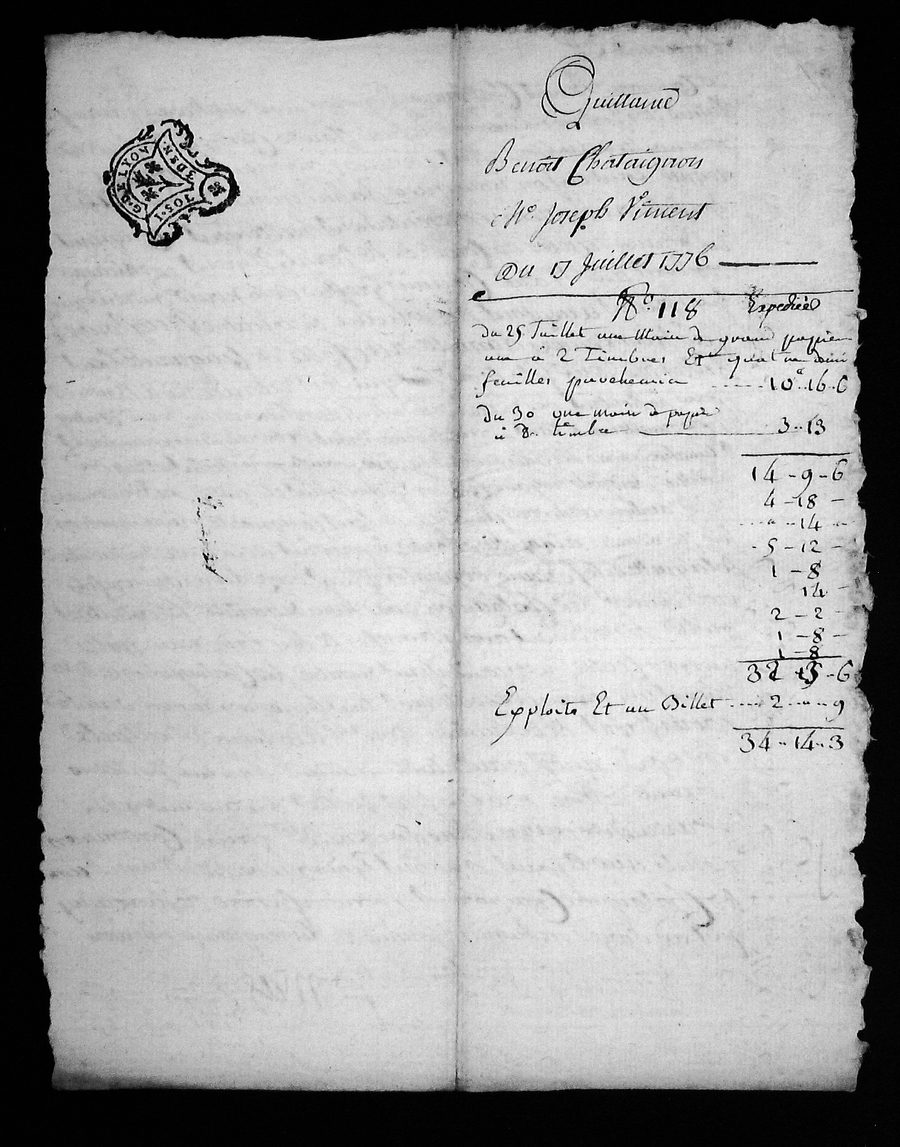 G. DE LYON
1. SOL
3 DEN.
Quittance
Benoit Chataignon
Me Joseph Viment
Du 17 Juillet 1776
No. 118 Expediée
du 25 Juillet une main de grand papier
a 2 Timbres Et quatre
feuilles 10.. 16.. 6
du 30 une main de papier
a 8. timbre 3.. 13
14 - 9 - 6
4 - 18 -
" - 14 -
5 - 12 -
1 - 8
14 -
2 - 2 -
1 - 8 -
1 - 8
32 - 13 - 6
Exploits Et un Billet .... 2 .. " .. 9
34 .. 14 .. 3